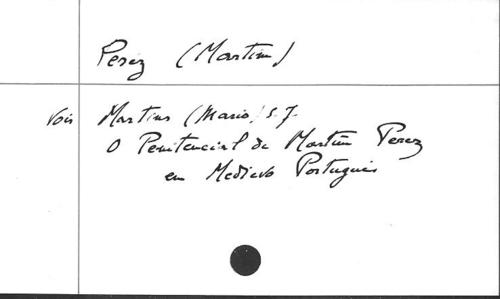 Perez (Martim)
Vois Martins (Mario) S.J.
O Penitencial de Martim Perez
em Medievo Portugues